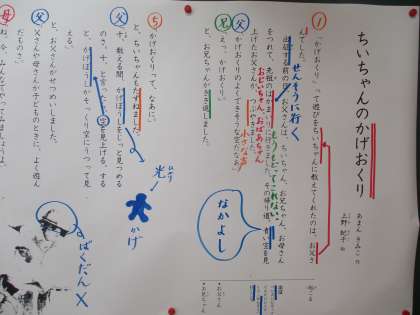 ちいちゃんのかげおくり
あまん きみこ 作
上野 紀子 絵
1
「かげおくり」って遊びをちいちゃんに教えてくれたのは、お父さ
んでした。
せんそうに行く
出征する前の日、お父さんは、ちいちゃん、お兄ちゃん、お母さん
もうもどってこれない
をつれて、先祖のはかまいりに行きました。その帰り道、青い空を見
おじいちゃん おばあちゃん
上げたお父さんが、つぶやきました。
小さな声
父
「かげおくりのよくできそうな空だなあ。」
兄
「えっ、かげおくり。」
と、お兄ちゃんがきき返しました。
なかよし
ち
「かげおくりって、なあに。」
と、ちいちゃんもたずねました。
父
「十、数える間、かげぼうしをじっと見つめる
のさ。十、と言ったら、空を見上げる。する
と、かげぼうしがそっくり空にうつって見
える。」
と、お父さんがせつめいしました。
光
かげ
父
「父さんや母さんが子どものときに、よく遊ん
だものさ。」
母
「ね。今、みんなでやってみましょうよ。」
ばくだん